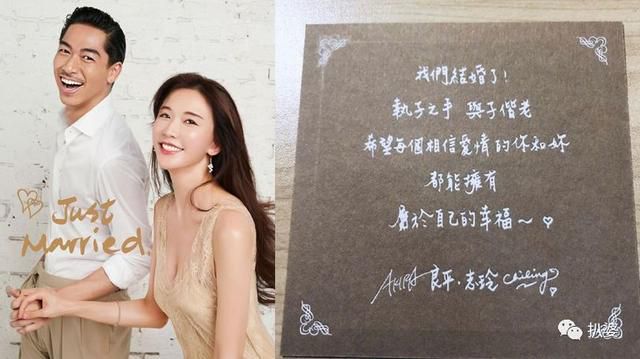 Just
Married
我們結婚了!
執子之手 與子偕老
希望每個相信愛情的你和妳
都能擁有
屬於自己的幸福~
AKIRA 良平.志玲 chiling
扒婆